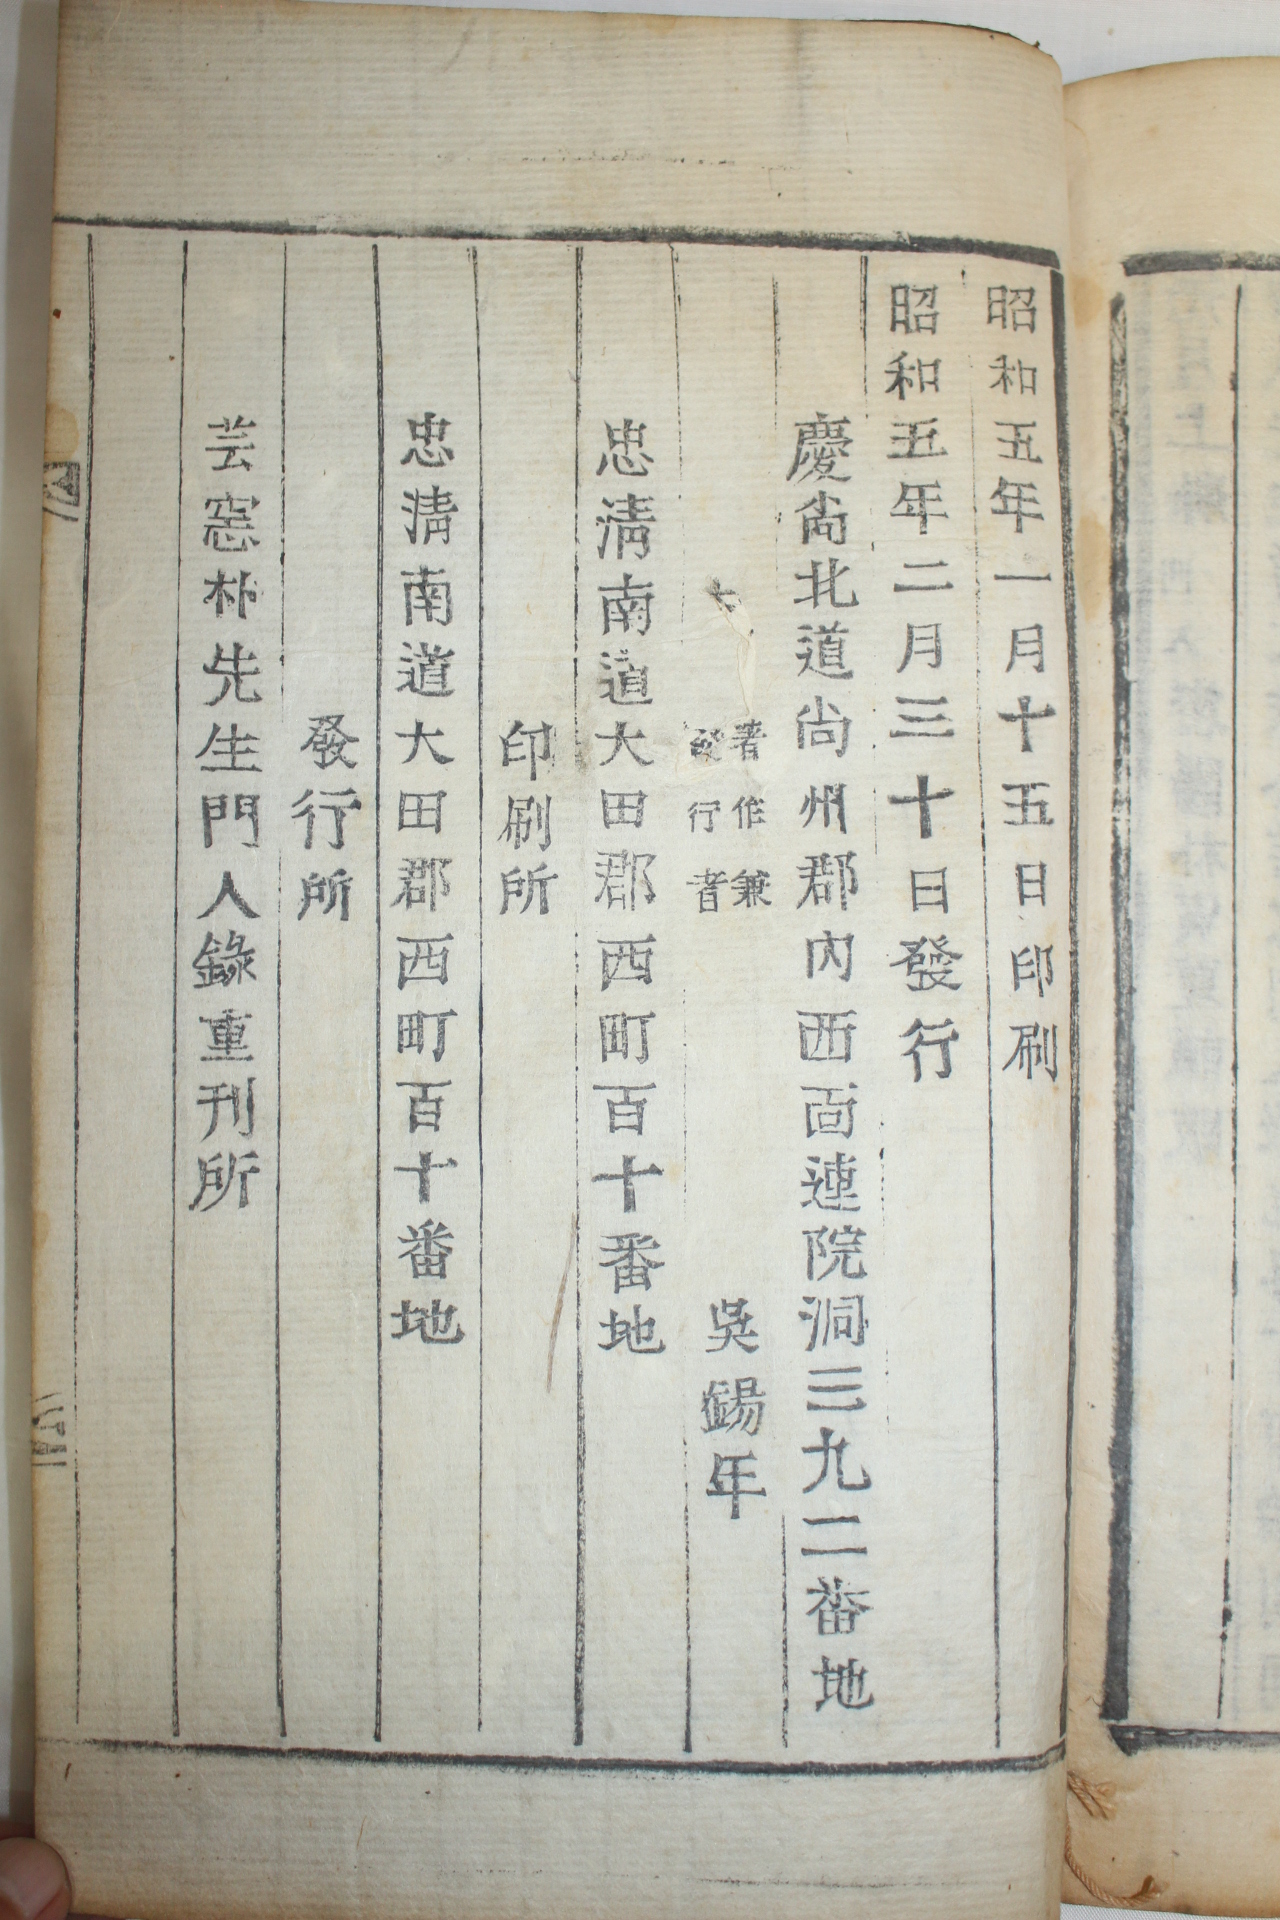 昭和五年一月十五日印刷
昭和五年二月三十日發行
慶尙北道尙州郡內西面連院洞三九二番地
著作兼
發行者
吳錫年
忠淸南道大田郡西町百十番地
印刷所
忠淸南道大田郡西町百十番地
發行所
芸窩朴先生門人錄重刊所